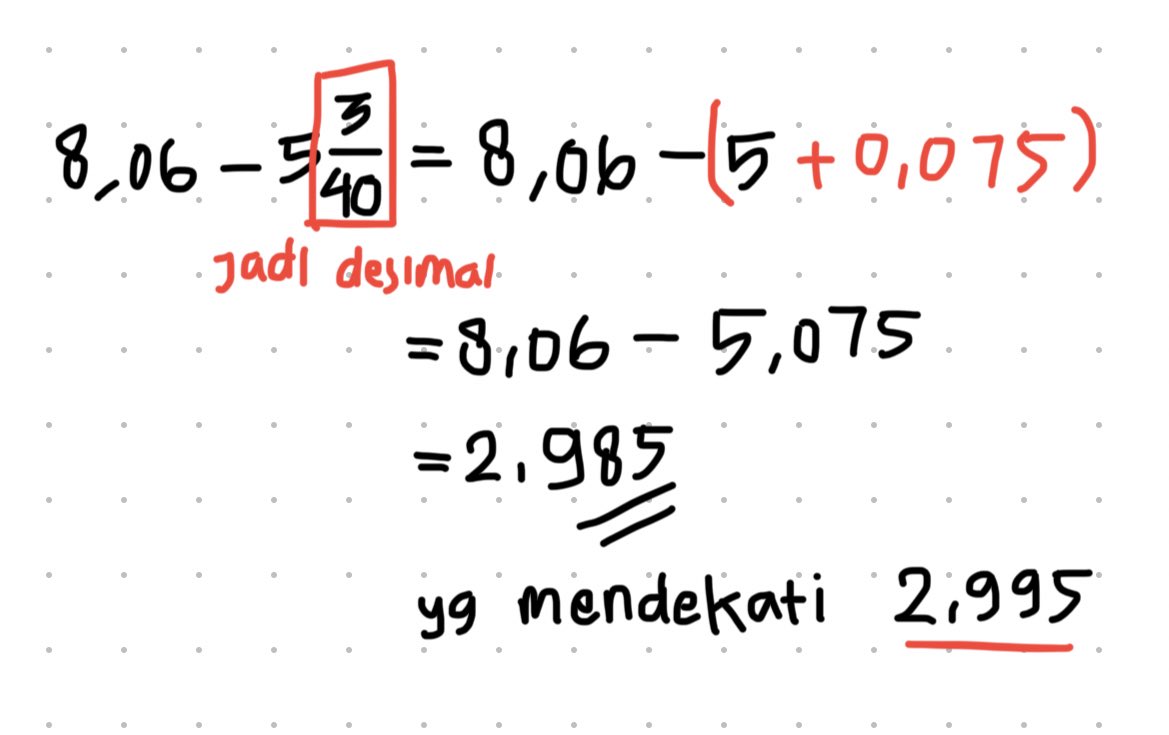 8,06 - 5 3/40 = 8,06 - (5 + 0,075)
jadi desimal
= 8,06 - 5,075
= 2,985
yg mendekati 2,995